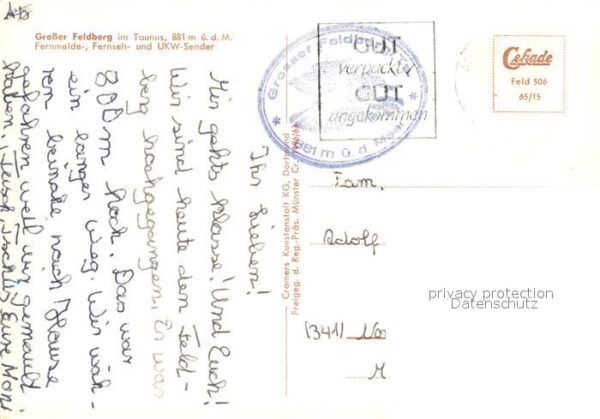 Großer Feldberg im Taunus, 881 m ü. d. M.
Fernmelde-, Fernseh- und UKW-Sender
Ihr Lieben!
Mir gehts klasse! Und Euch?
Wir sind heute den Feld-
berg hochgegangen. Er war
800m hoch. Das war
ein langer Weg. Wir wäh-
ren beinahe nach Hause
gefahren weil wir gemault
haben. Tschüß Eure Moni
Cramers Kunstanstalt KG, Dortmund
Freigeg. d. Reg.-Präs. Münster
* Grosser Feldberg *
881 m ü. d. Meer
GUT
verpackt
GUT
angekommen
Cekade
Feld 506
65/15
Fam.
Adolf
(341)
M
privacy protection
Datenschutz